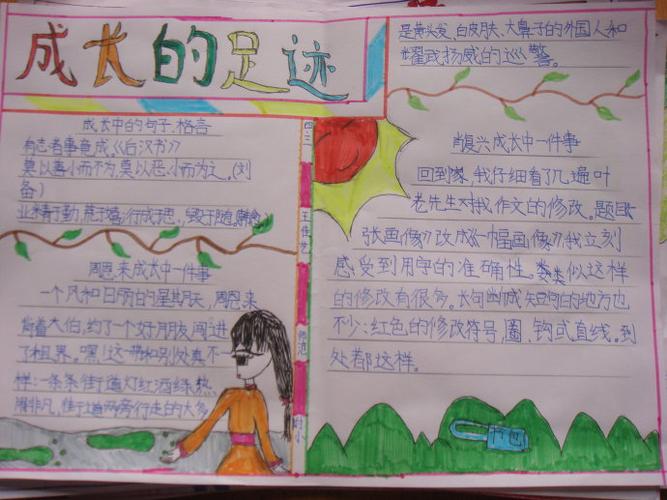 成长的足迹
成长中的句子、格言
有志者事竟成《后汉书》
莫以善小而不为,莫以恶小而为之。(刘
备)
业精于勤,荒于嬉;行成于思,毁于随。韩愈
周恩来成长中一件事
一个风和日丽的星期天,周恩来
背着大伯,约了一个好朋友闯进
了租界。嘿!这一带和别处真不一
样:一条条街道灯红酒绿,热
闹非凡,街道两旁行走的大多
四三
王佳艺
师范
附小
是黄头发、白皮肤、大鼻子的外国人和
耀武扬威的巡警。
肖复兴成长中一件事
回到家,我仔细看了几遍叶
老先生对我作文的修改。题目《一
张画像》改成《一幅画像》我立刻
感受到用字的准确性。类似这样
的修改有很多。长句断成短句的地方也
不少:红色的修改符号,圈、钩或直线。到
处都这样。